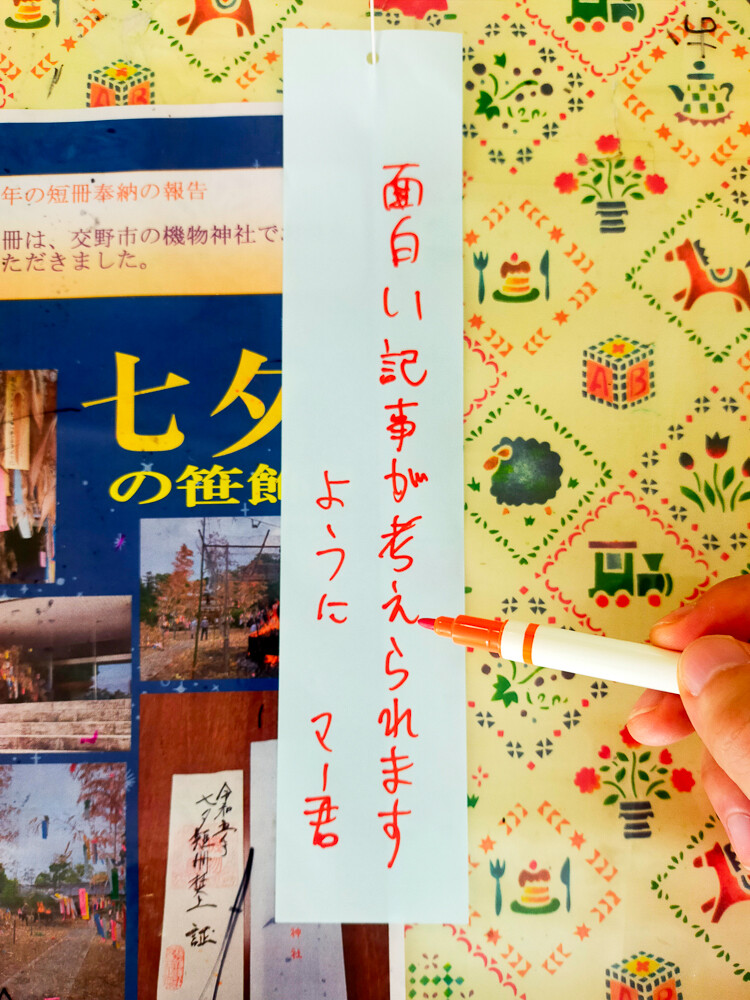 面白い記事が考えられます
ように
マー君
年の短冊奉納の報告
冊は、交野市の機物神社で
ただきました。
七夕
の笹飾
令和五年
七夕短冊焚上証
神社
A B
A B
A B